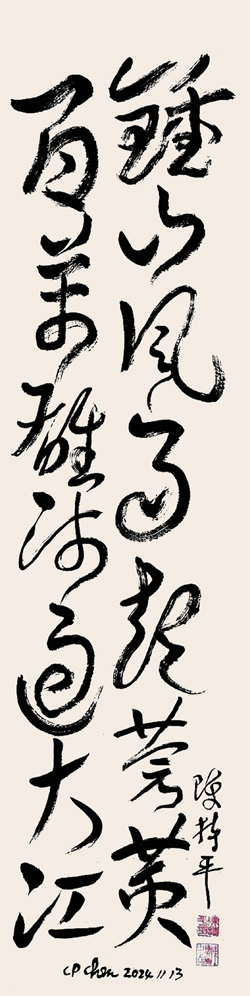 鍾山風雨起蒼黃
百萬雄師過大江
陳持平
CP Chen 2024 11 13